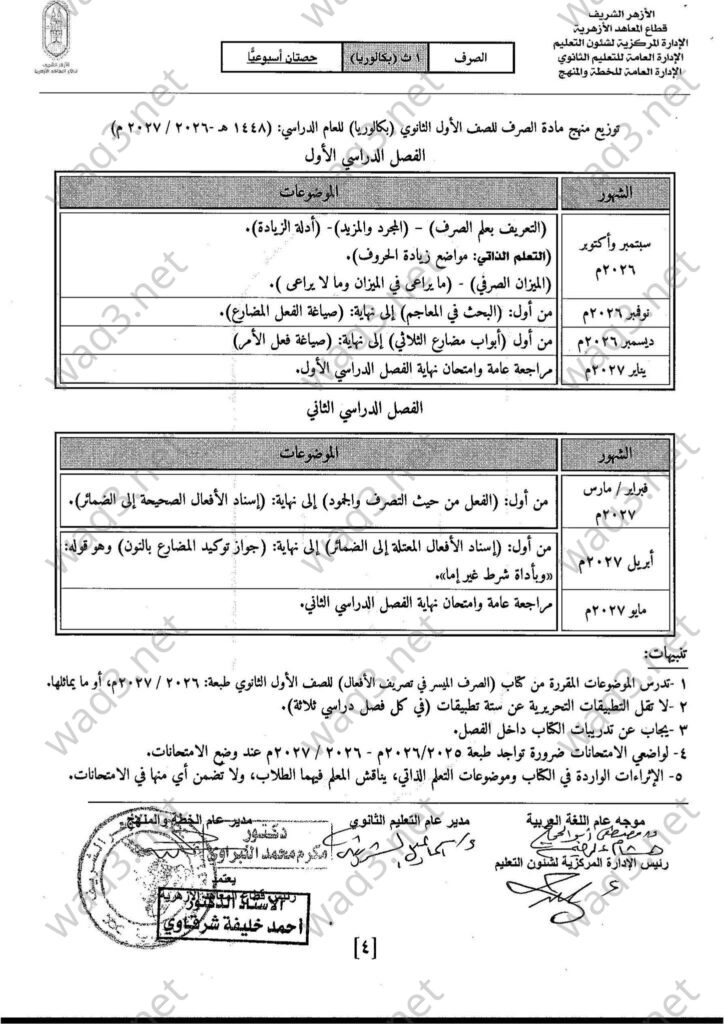 الأزهر الشريف
قطاع المعاهد الأزهرية
الإدارة المركزية لشئون التعليم
الإدارة العامة للتعليم الثانوي
الإدارة العامة للخطة والمنهج
الصرف
١ ث (بكالوريا)
حصتان أسبوعيًّا
توزيع منهج مادة الصرف للصف الأول الثانوي (بكالوريا) للعام الدراسي: (١٤٤٨ هـ -٢٠٢٦ / ٢٠٢٧ م)
الفصل الدراسي الأول
الشهور
الموضوعات
سبتمبر وأكتوبر
٢٠٢٦م
(التعريف بعلم الصرف) – (المجرد والمزيد)- (أدلة الزيادة).
(التعلم الذاتي: مواضع زيادة الحروف).
(الميزان الصرفي) - (ما يراعى في الميزان وما لا يراعى ).
نوفمبر ٢٠٢٦م
من أول: (البحث في المعاجم) إلى نهاية: (صياغة الفعل المضارع).
ديسمبر ٢٠٢٦م
من أول (أبواب مضارع الثلاثي) إلى نهاية: (صياغة فعل الأمر)
يناير ٢٠٢٧م
مراجعة عامة وامتحان نهاية الفصل الدراسي الأول.
الفصل الدراسي الثاني
الشهور
الموضوعات
فبراير / مارس
٢٠٢٧م
من أول: (الفعل من حيث التصرف والجمود) إلى نهاية: (إسناد الأفعال الصحيحة إلى الضمائر).
أبريل ٢٠٢٧م
من أول: (إسناد الأفعال المعتلة إلى الضمائر) إلى نهاية: (جواز توكيد المضارع بالنون) وهو قوله:
«وبأداة شرط غير إما».
مايو ٢٠٢٧م
مراجعة عامة وامتحان نهاية الفصل الدراسي الثاني.
تنبيهات:
١ -تدرس الموضوعات المقررة من كتاب (الصرف الميسر في تصريف الأفعال) للصف الأول الثانوي طبعة: ٢٠٢٦ / ٢٠٢٧م، أو ما يماثلها.
٢ -لا تقل التطبيقات التحريرية عن ستة تطبيقات (في كل فصل دراسي ثلاثة).
٣ -يجاب عن تدريبات الكتاب داخل الفصل.
٤- لواضعي الامتحانات ضرورة تواجد طبعة ٢٠٢٦/٢٠٢٥م - ٢٠٢٦ / ٢٠٢٧م عند وضع الامتحانات.
٥- الإثراءات الواردة في الكتاب وموضوعات التعلم الذاتي، يناقش المعلم فيهما الطلاب، ولا تُضمن أي منها في الامتحانات.
موجه عام اللغة العربية
مدير عام التعليم الثانوي
مدير عام الخطة والمنهج
دكتور
مكرم محمد اللبراوي
رئيس الإدارة المركزية لشئون التعليم
يعتمد
رئيس قطاع المعاهد الأزهرية
الأستاذ الدكتور
احمد خليفة شرقاوي
[٤]
waq3.net